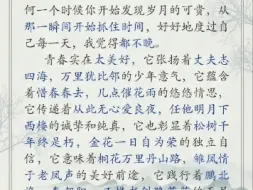 何一个时候你开始发现岁月的可贵，从
那一瞬间开始抓住时间，好好地度过自
己每一天，我觉得都不晚。
青春实在太美好，它张扬着丈夫志
四海，万里犹比邻的少年意气，它蕴含
着惜春春去，几点催花雨的悠悠情思，
它传递着从此无心爱良夜，任他明月下
西楼的诚挚和纯真，它也彰显着松树千
年终是朽，金花一日自为荣的独立自
信，它意味着桐花万里丹山路，雏凤情
于老凤声的美好前途，它践行着鹏北